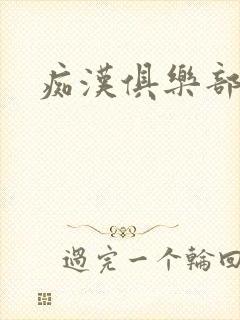 痴漢俱樂部
過完一个輪回